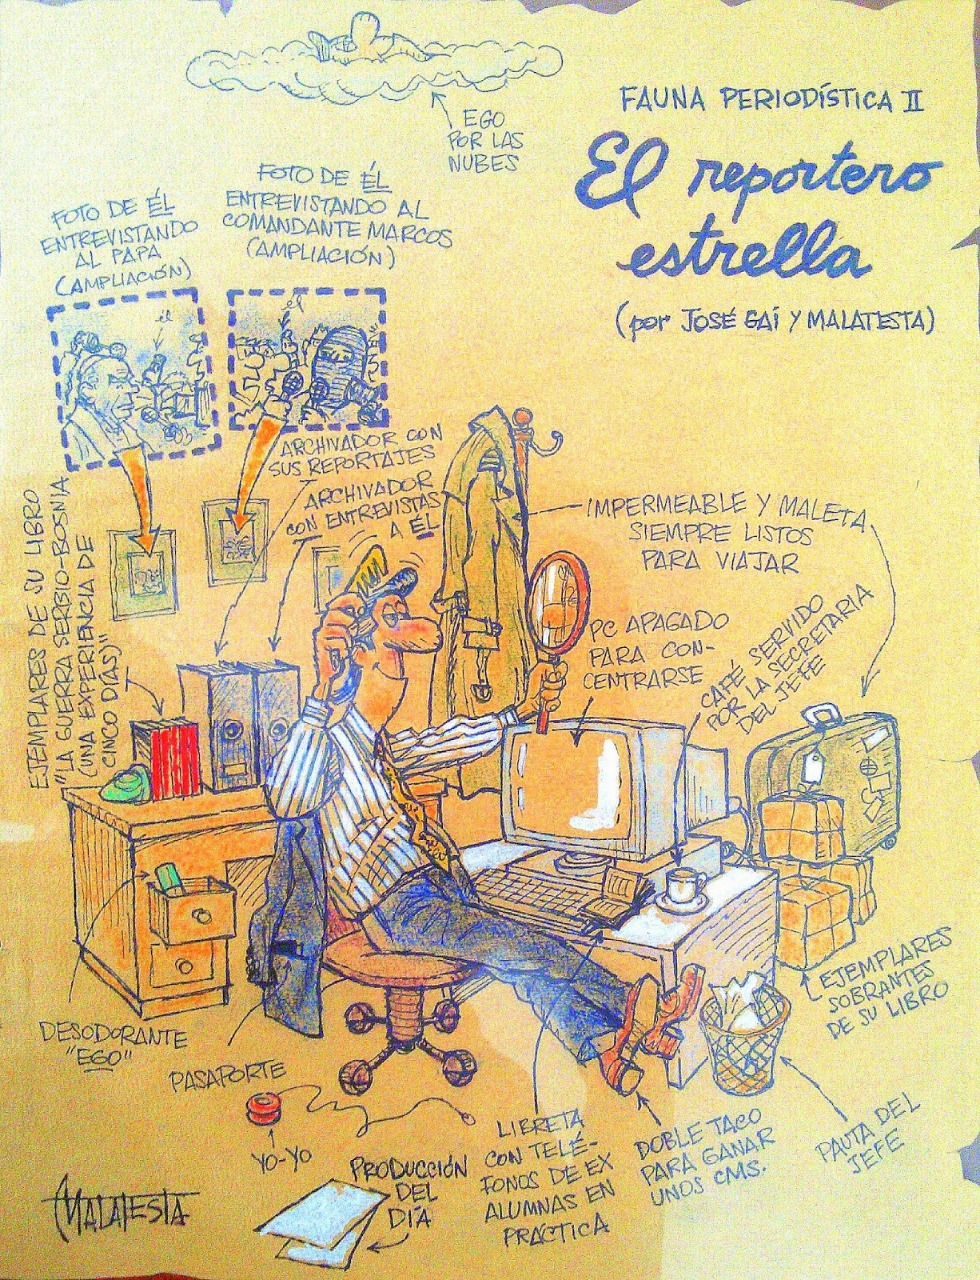 EGO
POR LAS
NUBES
FAUNA PERIODÍSTICA II
El reportero
estrella
(por JOSÉ GAI Y MALATESTA)
FOTO DE ÉL
ENTREVISTANDO
AL PAPA
(AMPLIACIÓN)
FOTO DE ÉL
ENTREVISTANDO AL
COMANDANTE MARCOS
(AMPLIACIÓN)
él
él
ARCHIVADOR CON
SUS REPORTAJES
ARCHIVADOR
CON ENTREVISTAS
A ÉL
EJEMPLARES DE SU LIBRO
"LA GUERRA SERBIO-BOSNIA
(UNA EXPERIENCIA DE
CINCO DÍAS)"
IMPERMEABLE Y MALETA
SIEMPRE LISTOS
PARA VIAJAR
PC APAGADO
PARA CON-
CENTRARSE
CAFÉ SERVIDO
POR LA SECRETARIA
DEL JEFE
EJEMPLARES
SOBRANTES
DE SU LIBRO
DESODORANTE
"EGO"
PASAPORTE
YO-YO
PRODUCCIÓN
DEL
DÍA
LIBRETA
CON TELÉ-
FONOS DE EX
ALUMNAS EN
PRÁCTICA
DOBLE TACO
PARA GANAR
UNOS CMS.
PAUTA DEL
JEFE
MALATESTA